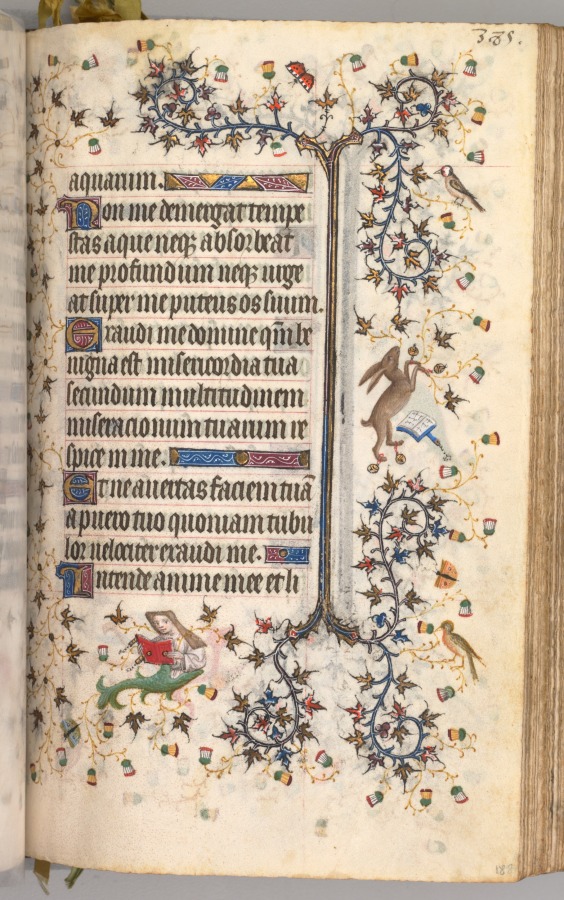 aquarum.
Non me demergat tempe
stas aque neqꝫ absorbeat
me profundum neqꝫ urge
at super me puteus os suum.
Exaudi me domine qm̄ be
nigna est misericordia tua
secundum multitudinem
miseracionum tuarum re
spice in me.
Et ne avertas faciem tuā
a puero tuo quoniam tribu
lor velociter exaudi me.
Intende anime mee et li
188